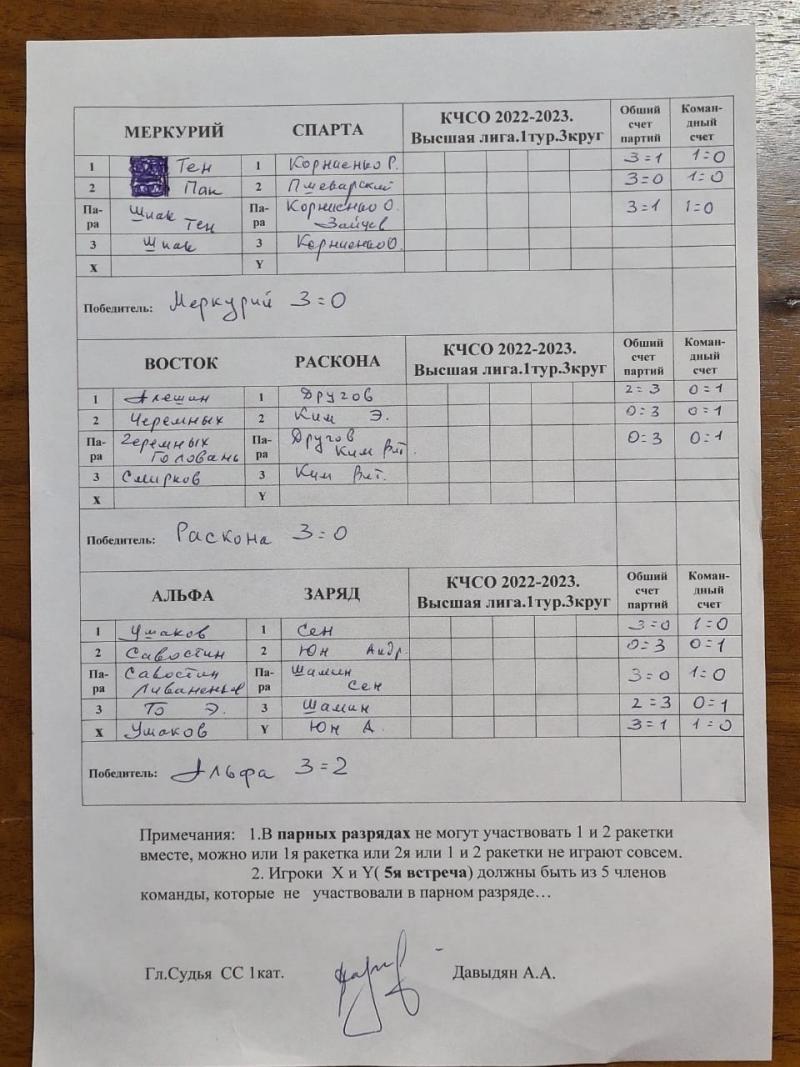 МЕРКУРИЙ СПАРТА КЧСО 2022-2023. Высшая лига.1тур.3круг Обший счет партий Коман-дный счет
1 Тен 1 Корниенко Р. 3=1 1=0
2 Пак 2 3=0 1=0
Па-ра Шпак Тен Па-ра Корниенко О. Зайцев 3=1 1=0
3 Шпак 3 Корниенко О.
X Y
Победитель: Меркурий 3=0
ВОСТОК РАСКОНА КЧСО 2022-2023. Высшая лига.1тур.3круг Обший счет партий Коман-дный счет
1 Алешин 1 Другов 2=3 0=1
2 Черемных 2 Ким Э. 0=3 0=1
Па-ра Черемных Головань Па-ра Другов Ким Влт. 0=3 0=1
3 Смирков 3 Ким Влт.
X Y
Победитель: Раскона 3=0
АЛЬФА ЗАРЯД КЧСО 2022-2023. Высшая лига.1тур.3круг Обший счет партий Коман-дный счет
1 Ушаков 1 Сен 3=0 1=0
2 Савостин 2 Юн Андр. 0=3 0=1
Па-ра Савостин Па-ра Шамин Сен 3=0 1=0
3 То Э. 3 Шамин 2=3 0=1
X Ушаков Y Юн А. 3=1 1=0
Победитель: Альфа 3=2
Примечания: 1.В парных разрядах не могут участвовать 1 и 2 ракетки
вместе, можно или 1я ракетка или 2я или 1 и 2 ракетки не играют совсем.
2. Игроки X и Y( 5я встреча) должны быть из 5 членов
команды, которые не участвовали в парном разряде…
Гл.Судья СС 1кат. Давыдян А.А.